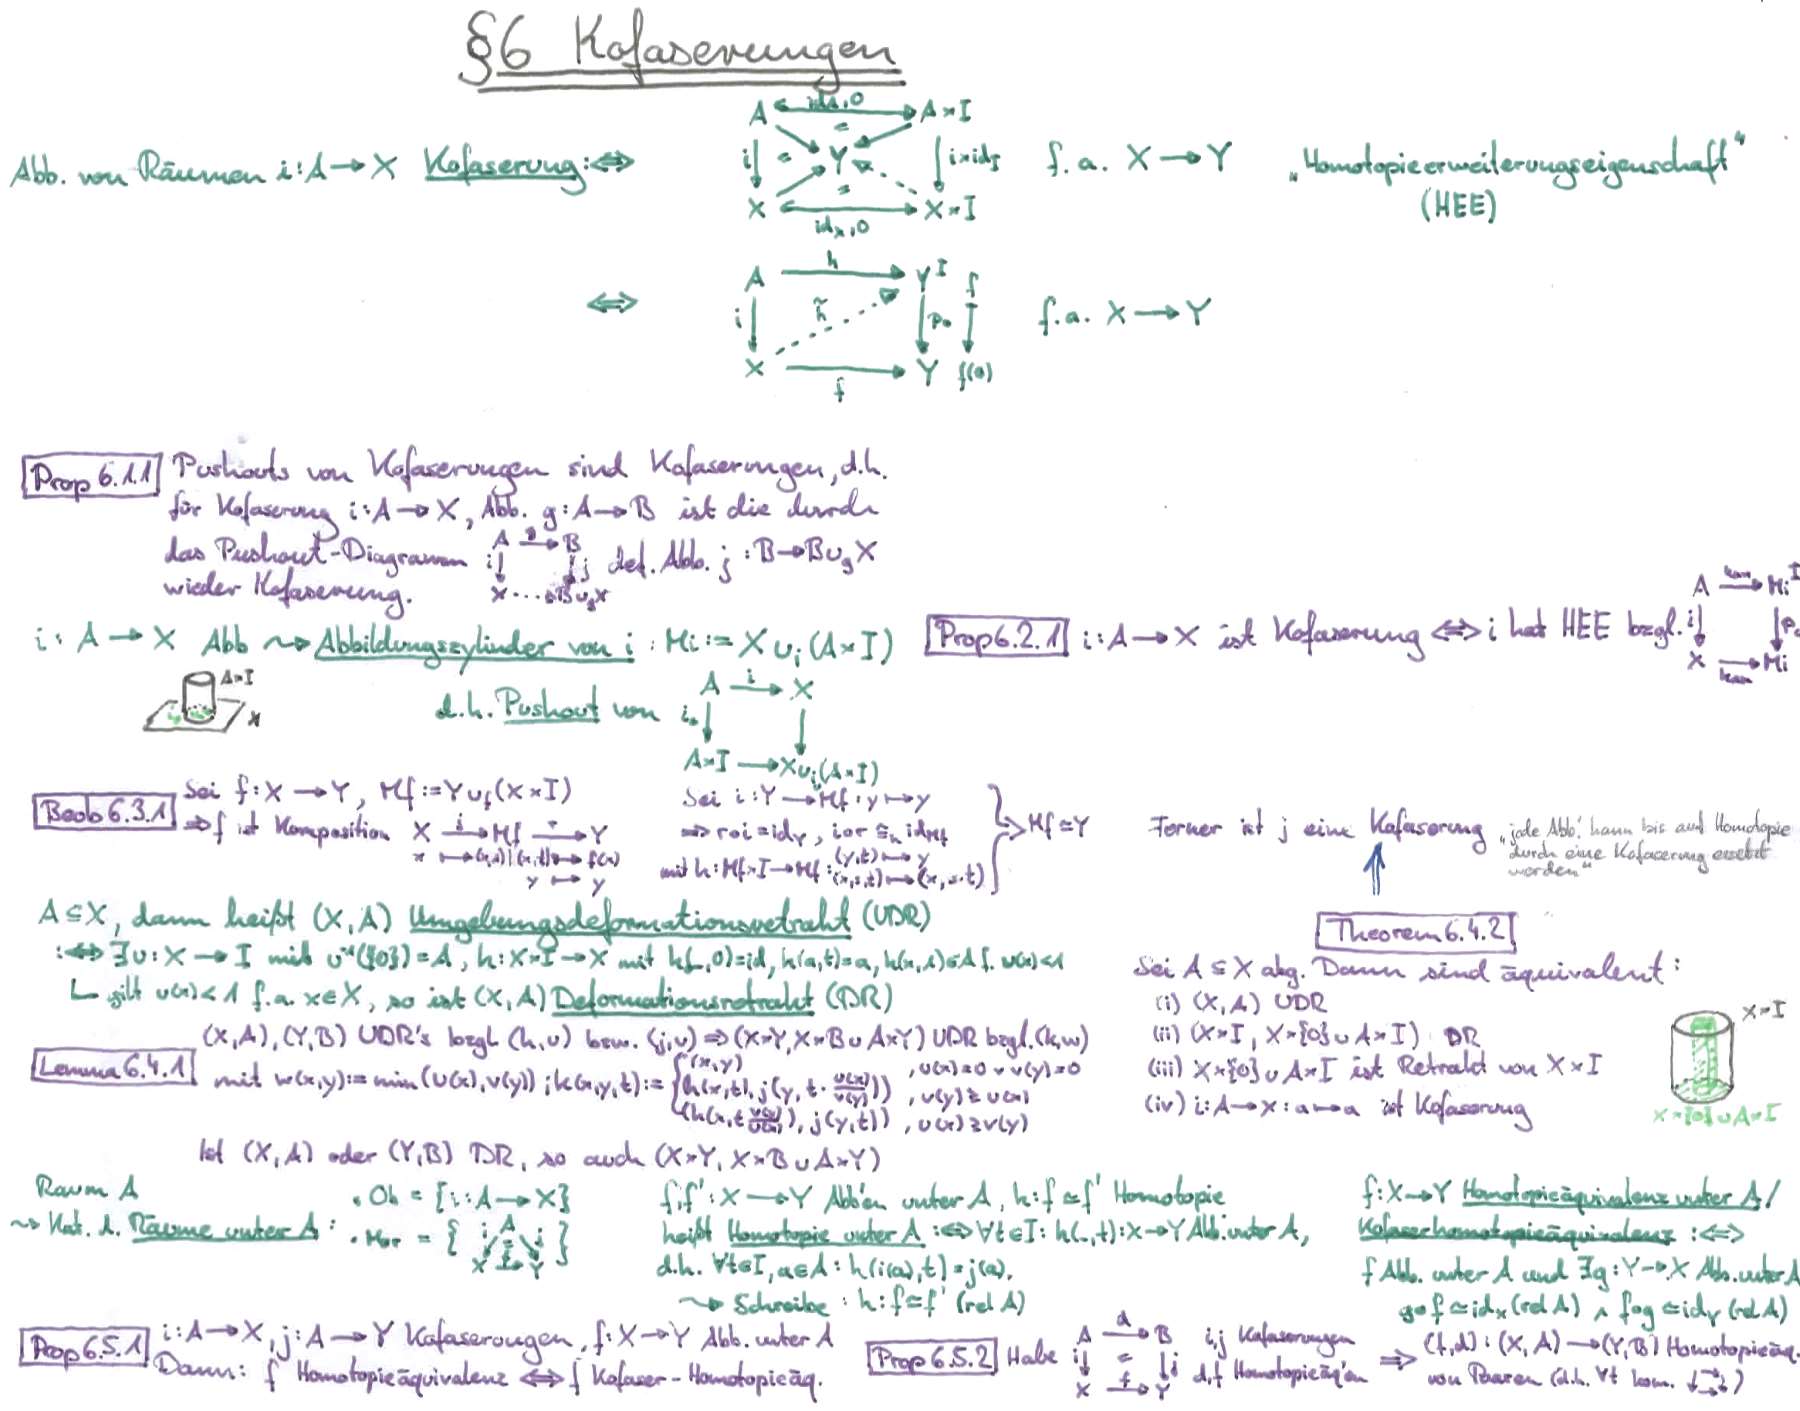 §6 Kofaserungen
A id_A,0 A×I
Abb. von Räumen i:A→X Kofaserung :⇔ i Y i×id_I f.a. X→Y „Homotopieerweiterungseigenschaft"
X id_X,0 X×I (HEE)
A h Y^I f
⇔ i h̃ p₀ f.a. X→Y
X f Y f(0)
Prop 6.1.1 Pushouts von Kofaserungen sind Kofaserungen, d.h.
für Kofaserung i:A→X, Abb. g:A→B ist die durch
das Pushout-Diagramm A g B i j X B∪_g X def. Abb. j:B→B∪_g X
wieder Kofaserung.
i: A→X Abb ⇝ Abbildungszylinder von i : Mi := X∪_i(A×I)
A×I X
d.h. Pushout von A i X i₀ A×I → X∪_i(A×I)
Prop 6.2.1 i:A→X ist Kofaserung ⇔ i hat HEE bzgl. A kan Mi^I i p₀ X kan Mi
Beob 6.3.1 Sei f:X→Y, Mf:=Y∪_f(X×I)
⇒ f ist Komposition X j→ Mf r→ Y
x ↦ (x,1) | (x,t) ↦ f(x)
y ↦ y
Sei i:Y→Mf: y↦y
⇒ r∘i=id_Y, i∘r ≃_h id_Mf
mit h:Mf×I→Mf: (y,t)↦y
(x,s,t)↦(x,s·t)
Mf≃Y
Ferner ist j eine Kofaserung „jede Abb. kann bis auf Homotopie
durch eine Kofaserung ersetzt
werden"
A⊆X, dann heißt (X,A) Umgebungsdeformationsretrakt (UDR)
:⇔ ∃u:X→I mit u⁻¹({0})=A, h:X×I→X mit h(_,0)=id, h(a,t)=a, h(x,1)∈A f. u(x)<1
∟ gilt u(x)<1 f.a. x∈X, so ist (X,A) Deformationsretrakt (DR)
Lemma 6.4.1 (X,A),(Y,B) UDR's bzgl (h,u) bzw. (j,v) ⇒ (X×Y, X×B∪A×Y) UDR bzgl. (k,w)
mit w(x,y):=min(u(x),v(y)); k(x,y,t):= { (x,y) , u(x)=0 ∨ v(y)=0
(h(x,t), j(y,t·u(x)/v(y))) , v(y)≥u(x)
(h(x,t v(y)/u(x)), j(y,t)) , u(x)≥v(y)
Ist (X,A) oder (Y,B) DR, so auch (X×Y, X×B∪A×Y)
Theorem 6.4.2
Sei A⊆X abg. Dann sind äquivalent:
(i) (X,A) UDR
(ii) (X×I, X×{0}∪A×I) DR
(iii) X×{0}∪A×I ist Retrakt von X×I
(iv) i:A→X:a↦a ist Kofaserung
X×I
X×{0}∪A×I
Raum A
⇝ Kat. d. Räume unter A:
• Ob = {i:A→X}
• Mor = { A i j X f Y }
f,f':X→Y Abb'en unter A, h:f≃f' Homotopie
heißt Homotopie unter A :⇔ ∀t∈I: h(_,t):X→Y Abb. unter A,
d.h. ∀t∈I, a∈A: h(i(a),t)=j(a).
⇝ Schreibe: h:f≃f' (rel A)
f:X→Y Homotopieäquivalenz unter A /
Kofaserhomotopieäquivalenz :⇔
f Abb. unter A und ∃g:Y→X Abb. unter A
g∘f≃id_X (rel A) ∧ f∘g≃id_Y (rel A)
Prop 6.5.1 i:A→X, j:A→Y Kofaserungen, f:X→Y Abb. unter A
Dann: f Homotopieäquivalenz ⇔ f Kofaser-Homotopieäq.
Prop 6.5.2 Habe A d B i j X f Y i,j Kofaserungen
d,f Homotopieäq'en
⇒ (f,d):(X,A)→(Y,B) Homotopieäq.
von Paaren (d.h. ∀t kom.)